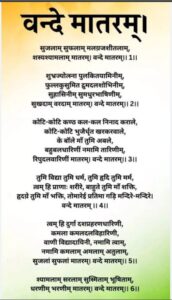 वन्दे मातरम्।
सुजलाम् सुफलाम् मलयजशीतलाम्,
शस्यश्यामलाम् मातरम्। वन्दे मातरम्।। 1।।
शुभ्रज्योत्स्ना पुलकितयामिनीम्,
फुल्लकुसुमित द्रुमदलशोभिनीम्,
सुहासिनीम् सुमधुरभाषिणीम्,
सुखदाम् वरदाम् मातरम्। वन्दे मातरम्।। 2।।
कोटि-कोटि कण्ठ कल-कल निनाद कराले,
कोटि-कोटि भुजैर्धृत खरकरवाले,
के बॉले माँ तुमि अबले,
बहुबलधारिणीं नमामि तारिणीम्,
रिपुदलवारिणीं मातरम्। वन्दे मातरम्।। 3।।
तुमि विद्या तुमि धर्म, तुमि हृदि तुमि मर्म,
त्वम् हि प्राणाः शरीरे, बाहुते तुमि माँ शक्ति,
हृदये तुमि माँ भक्ति, तोमारेई प्रतिमा गड़ि मन्दिरे-मन्दिरे।
वन्दे मातरम् ।। 4।।
त्वम् हि दुर्गा दशप्रहरणधारिणी,
कमला कमलदलविहारिणी,
वाणी विद्यादायिनी, नमामि त्वाम्,
नमामि कमलाम् अमलाम् अतुलाम्,
सुजलां सुफलां मातरम्। वन्दे मातरम्।। 5।।
श्यामलाम् सरलाम् सुस्मिताम् भूषिताम्,
धरणीम् भरणीम् मातरम्। वन्दे मातरम्।। 6।।